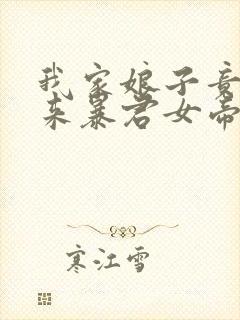 我家娘子竟
来暴君女帝
寒江雪